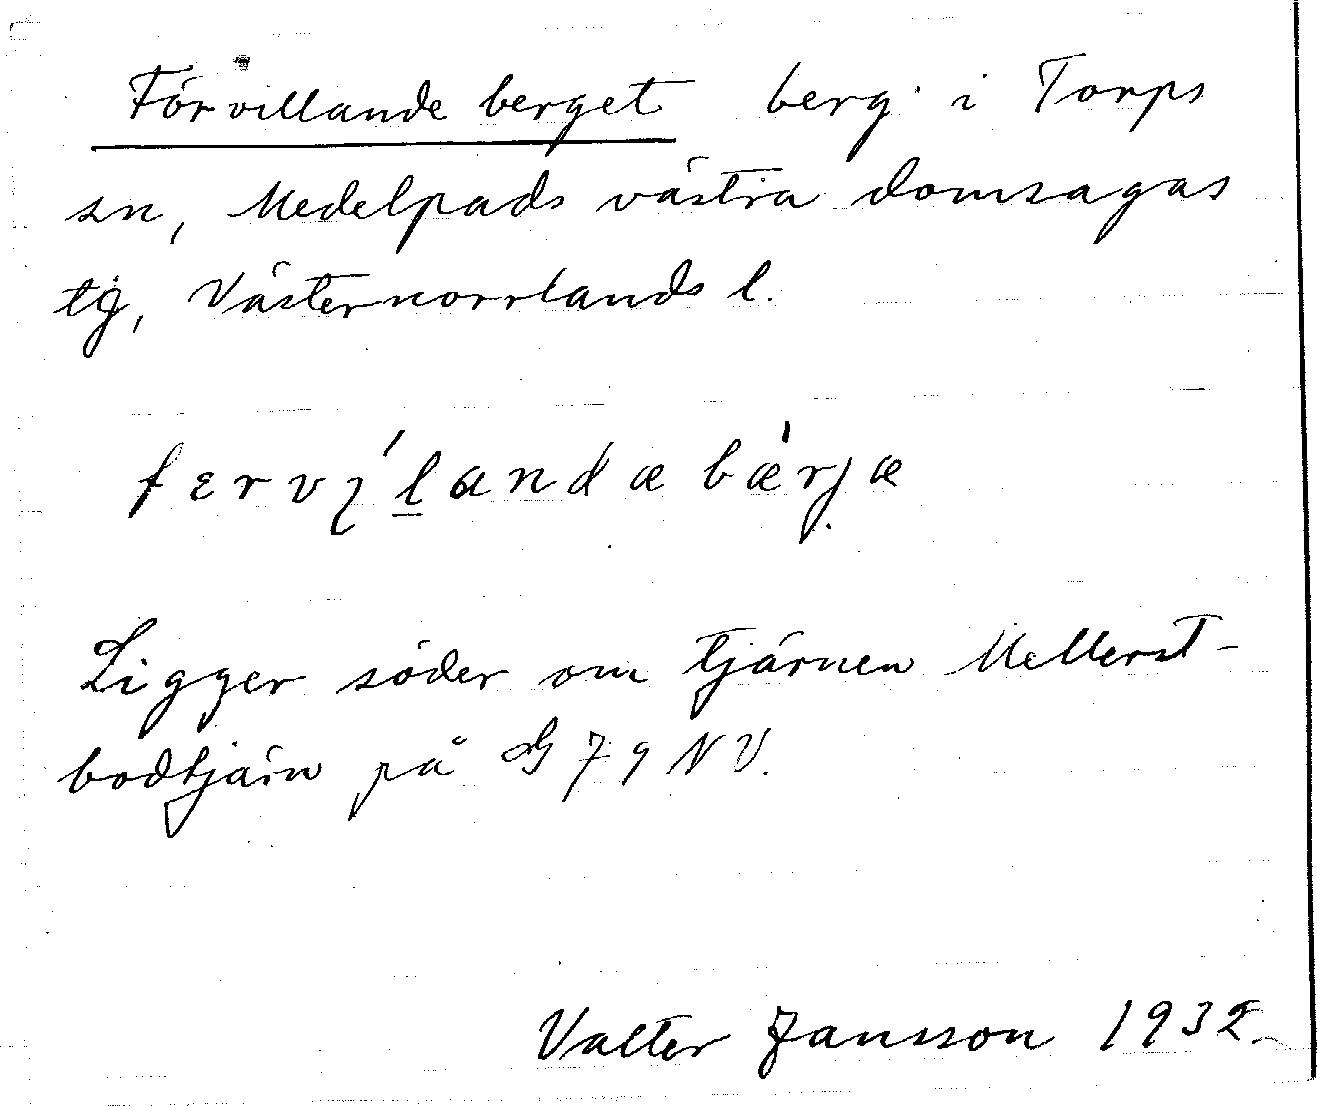 Förvillande berget berg i Torps
sn, Medelpads västra domsagas
tg, Västernorrlands l.
fervílandæ bǽrjæ
Ligger söder om tjärnen Mellerst-
bodtjärn på G 79 NV.
Valter Jansson 1932.